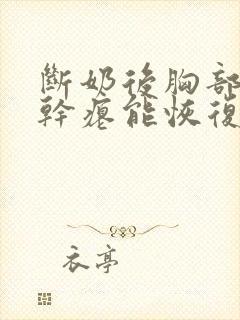 斷奶後胸部
幹癟能恢復
衣亭